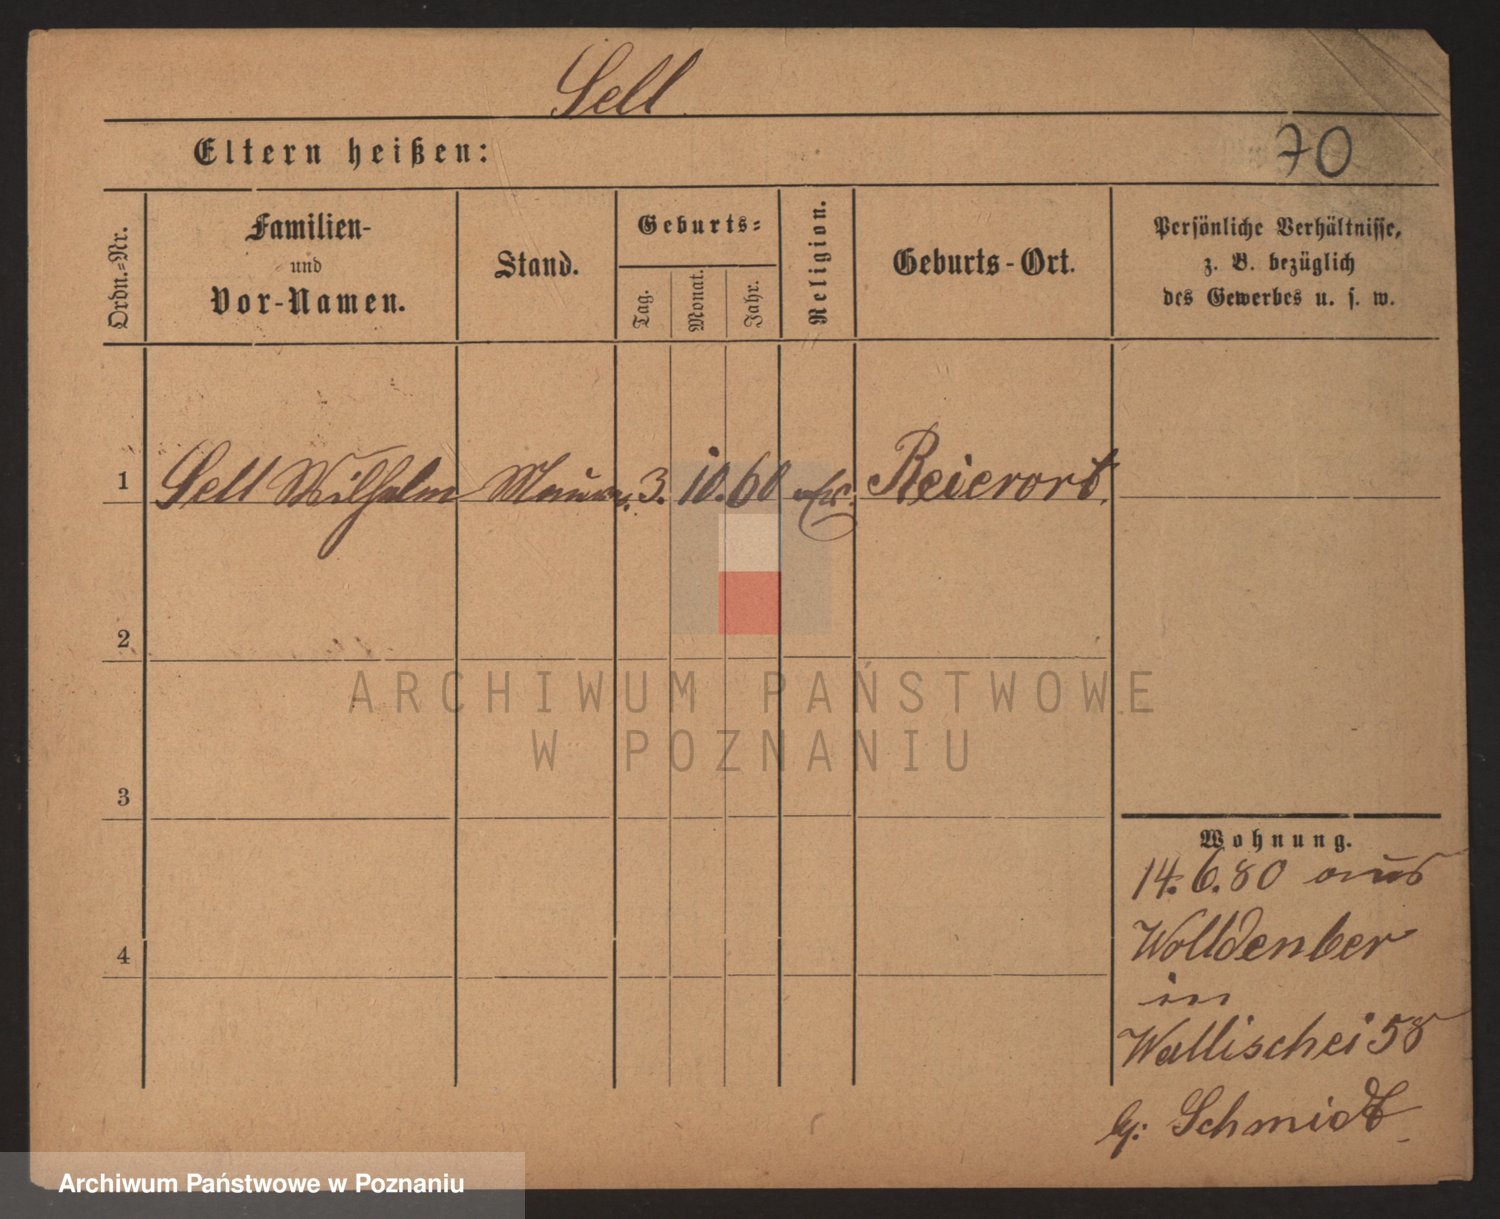 Sell
Eltern heißen:
70
Ordn.=Nr.
Familien-
und
Vor-Namen.
Stand.
Geburts=
Tag.
Monat.
Jahr.
Religion.
Geburts-Ort.
Persönliche Verhältnisse,
z. B. bezüglich
des Gewerbes u. s. w.
1 Sell Wilhelm Maurer. 3. 10. 60 Reierort.
2
3
4
Wohnung.
14. 6. 80 aus
Wolldenber
in
Wallischei 58
Schmidt
ARCHIWUM PAŃSTWOWE
W POZNANIU
Archiwum Państwowe w Poznaniu